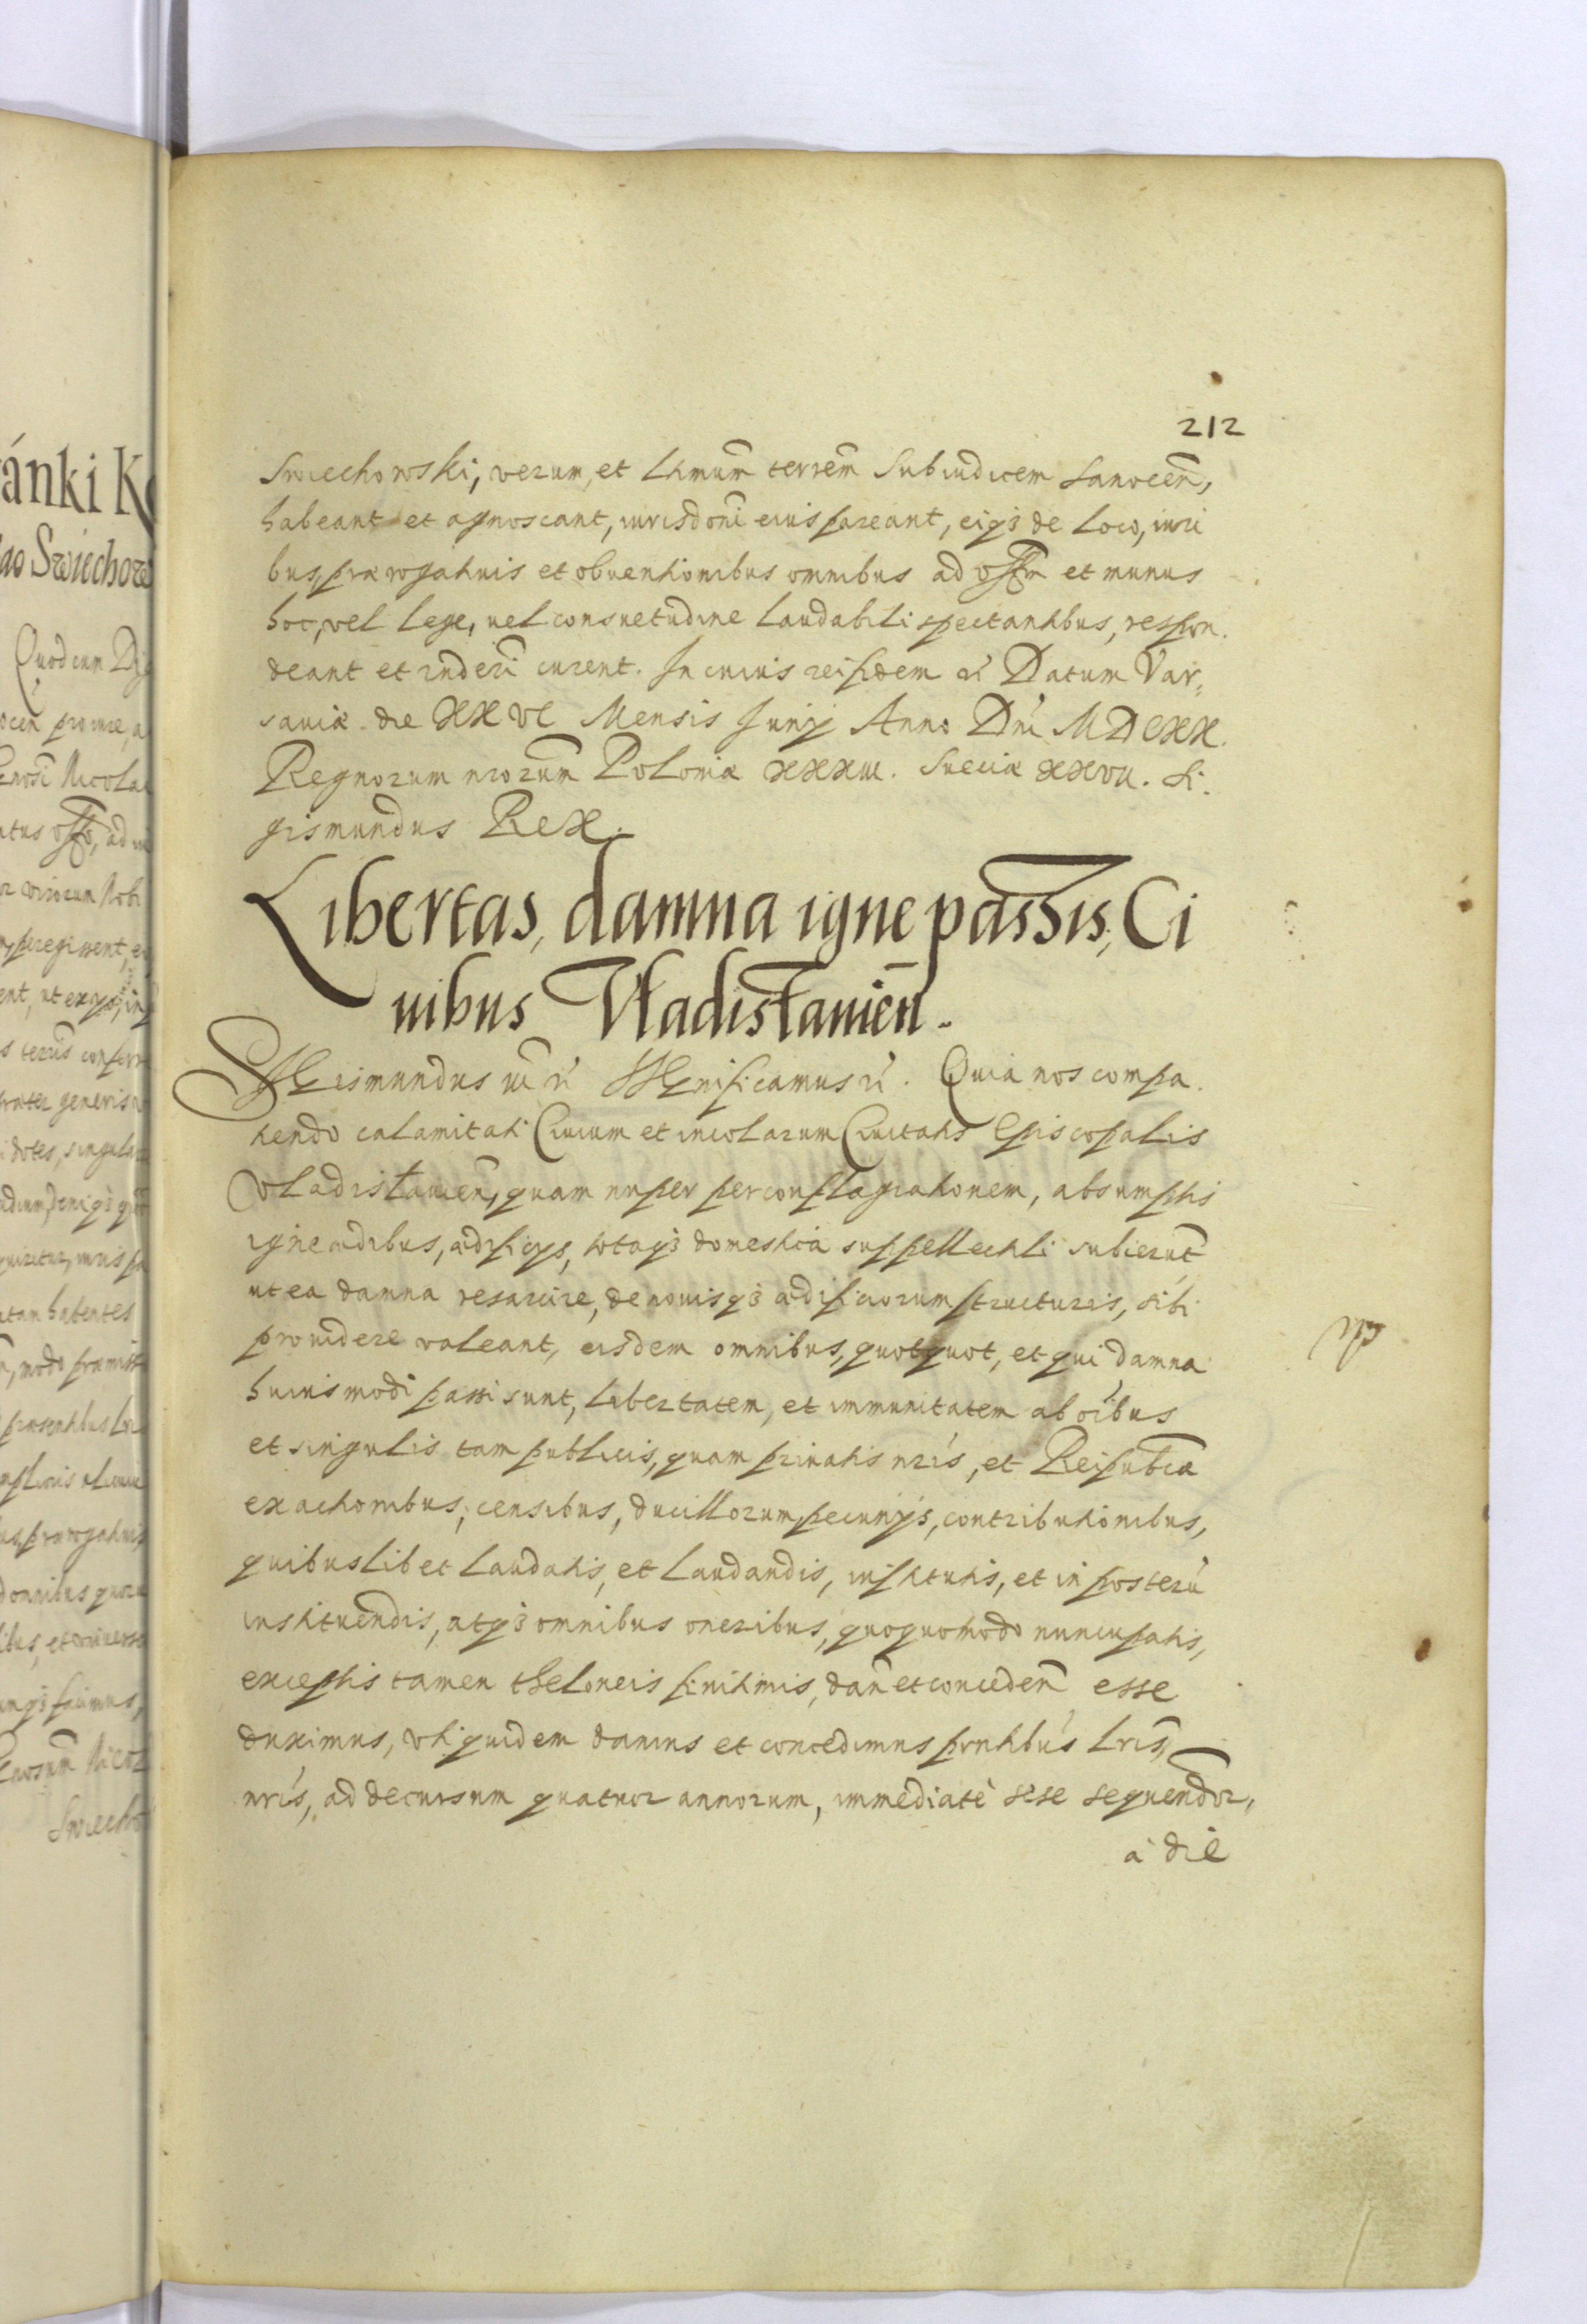 212
Swiechowski, verum, et Ltimum terrem̃ Subiudicem Sanocen̄,
habeant et agnoscant, iurisdoni eius pareant, eiq₃ de loco, iuri
bus, prærogatiuis et obuentionibus omnibus ad offm et munus
hoc, vel lege, uel consuetudine laudabili spectantibus, respon.
deant et rnderi curent. In cuius rei fidem &c Datum Var„
sauiæ die XXVI Mensis Junij Anno Dni MDCXX.
Regnorum nrorum Poloniæ XXXIII. Sueciæ XXVII. Si.
gismundus Rex.
Libertas, damna igne passis, Ci
uibus Vladislauien̄.
SIgismundus III &c SIgnificamus &c. Quia nos compa.
tiendo calamitati Ciuium et incolarum Ciuitatis Episcopalis
Vladislauien̄, quam nuper per conflagrationem, absumptis
igne ædibus, ædificijs, totaq₃ domestica suppellectili subierunt
ut ea damna resarcire, de nouisq₃ ædificiorum structuris, sibi
prouidere valeant, eisdem omnibus, quotquot, et qui damna
huiusmodi passi sunt, libertatem, et immunitatem ab oibus
et singulis tam publicis, quam priuatis nris, et Reipubcæ
exactionibus, censibus, ducillorum pecunijs, contributionibus,
quibuslibet laudatis, et laudandis, institutis, et in posterū
instituendis, atq₃ omnibus oneribus, quoquomodo nuncupatis,
exceptis tamen theloneis finitimis, dan̄ et conceden̄ esse
duximus, vti quidem damus et concedimus pntibus Lris,
nris, ad decursum quatuor annorum, immediatè sese sequendor,
à die